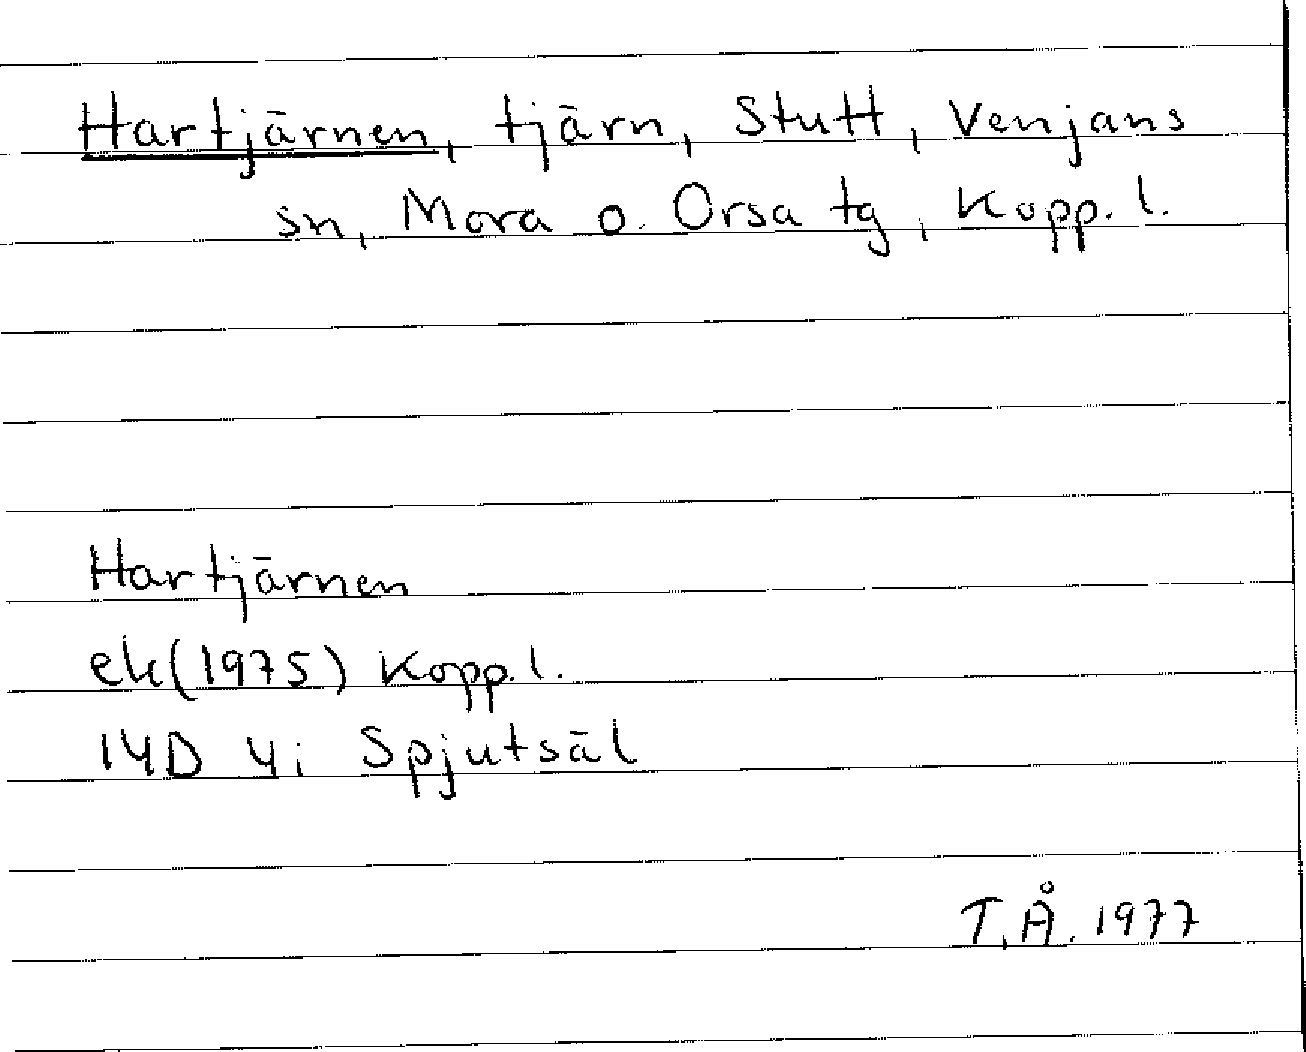 Hartjärnen, tjärn, Stutt, Venjans
sn, Mora o. Orsa tg, Kopp. l.
Hartjärnen
ek (1975) Kopp. l.
14D 4i Spjutsäl
T.Å. 1977